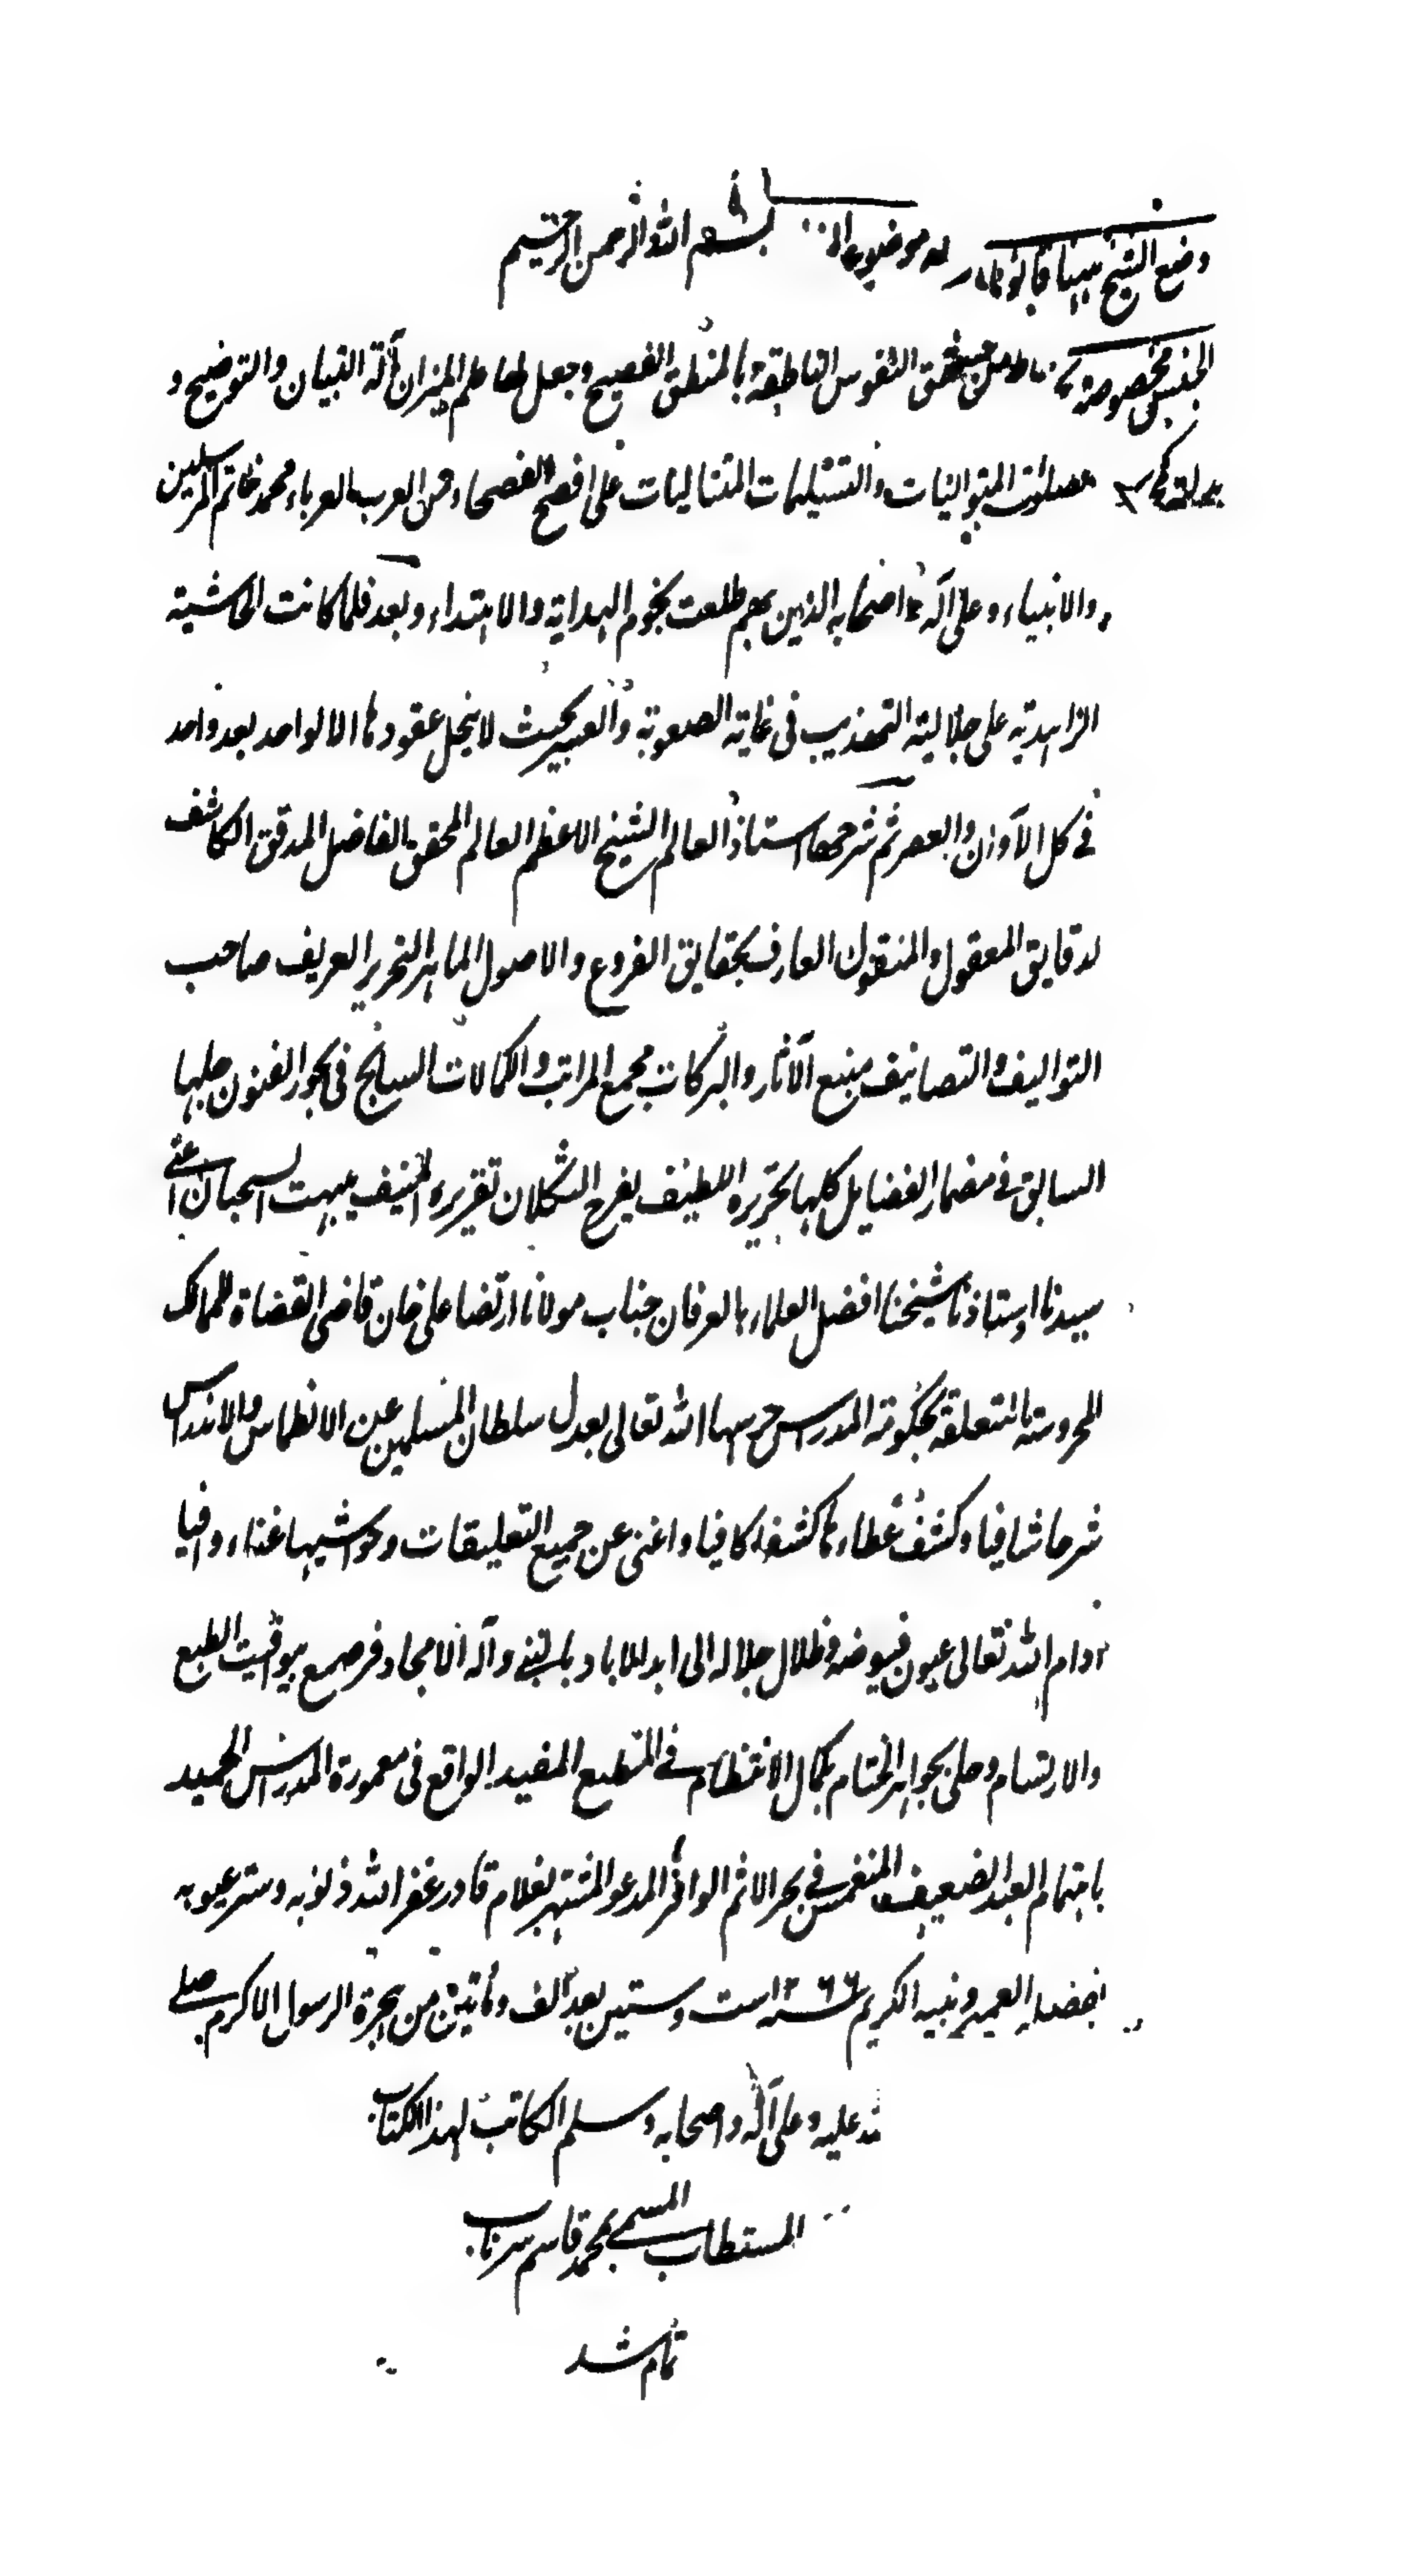 بسم الله الرحمن الرحيم
وضع الشيخ موضوع
الجنس مخصوصة من النفوس الناطقة بالمنطق الفصيح وجعل لها علم الميزان آلة التبيان والتوضيح و
المتواليات والتسليمات المتتاليات على افصح الفصحاء من العرب العرباء محمد خاتم المرسلين
والانبياء وعلى آله واصحابه الذين بهم طلعت نجوم الهداية والاهتداء وبعد فلما كانت الحاشية
الزاهدية على جلالية التهذيب في غاية الصعوبة والعسر بحيث لا ينحل عقودها الا لواحد بعد واحد
في كل الآوان والعصر ثم شرحها استاذ العالم الشيخ الاعظم العالم المحقق الفاضل المدقق الكاشف
لدقايق المعقول والمنقول العارف بحقايق الفروع والاصول الماهر النحرير العريف صاحب
التواليف والتصانيف منبع الآثار والبركات مجمع المراتب والكمالات السابح في بحور الفنون جلها
السابق في مضمار الفضايل كلها بتحريره اللطيف يفرح الثكلان تقريره المنيف يبهت السحبان اعنى
سيدنا استاذنا شيخنا افضل العلماء بالعرفان جناب مولانا ارتضا على خان قاضى القضاة للممالك
المحروسة المتعلقة بحكومة المدراس حرسها الله تعالى بعدل سلطان المسلمين عن الانطماس والاندراس
شرحا شافيا وكشف غطاءها كشفا كافيا واغنى عن جميع التعليقات وحواشيها غناء وافيا
ادام الله تعالى عيون فيوضه وظلال جلاله الى ابد الاباد بالنبي وآله الامجاد فرصع بيواقيت الطبع
والارتسام وحلى بجواهر الختام بكمال الانتظام في المطبع المفيد الواقع في معمورة المدراس الحميد
باهتمام العبد الضعيف المنغمس في بحر الاثم الوافر المدعو المشتهر بغلام قادر غفر الله ذنوبه وستر عيوبه
بفضله العميم ونبيه الكريم سنه ١٢٦٦ ست وستين بعد الف ومأتين من هجرة الرسول الاكرم صلى
الله عليه وعلى آله واصحابه وسلم الكاتب لهذا الكتاب
المستطاب المسمى بمحمد قاسم
تمام شد